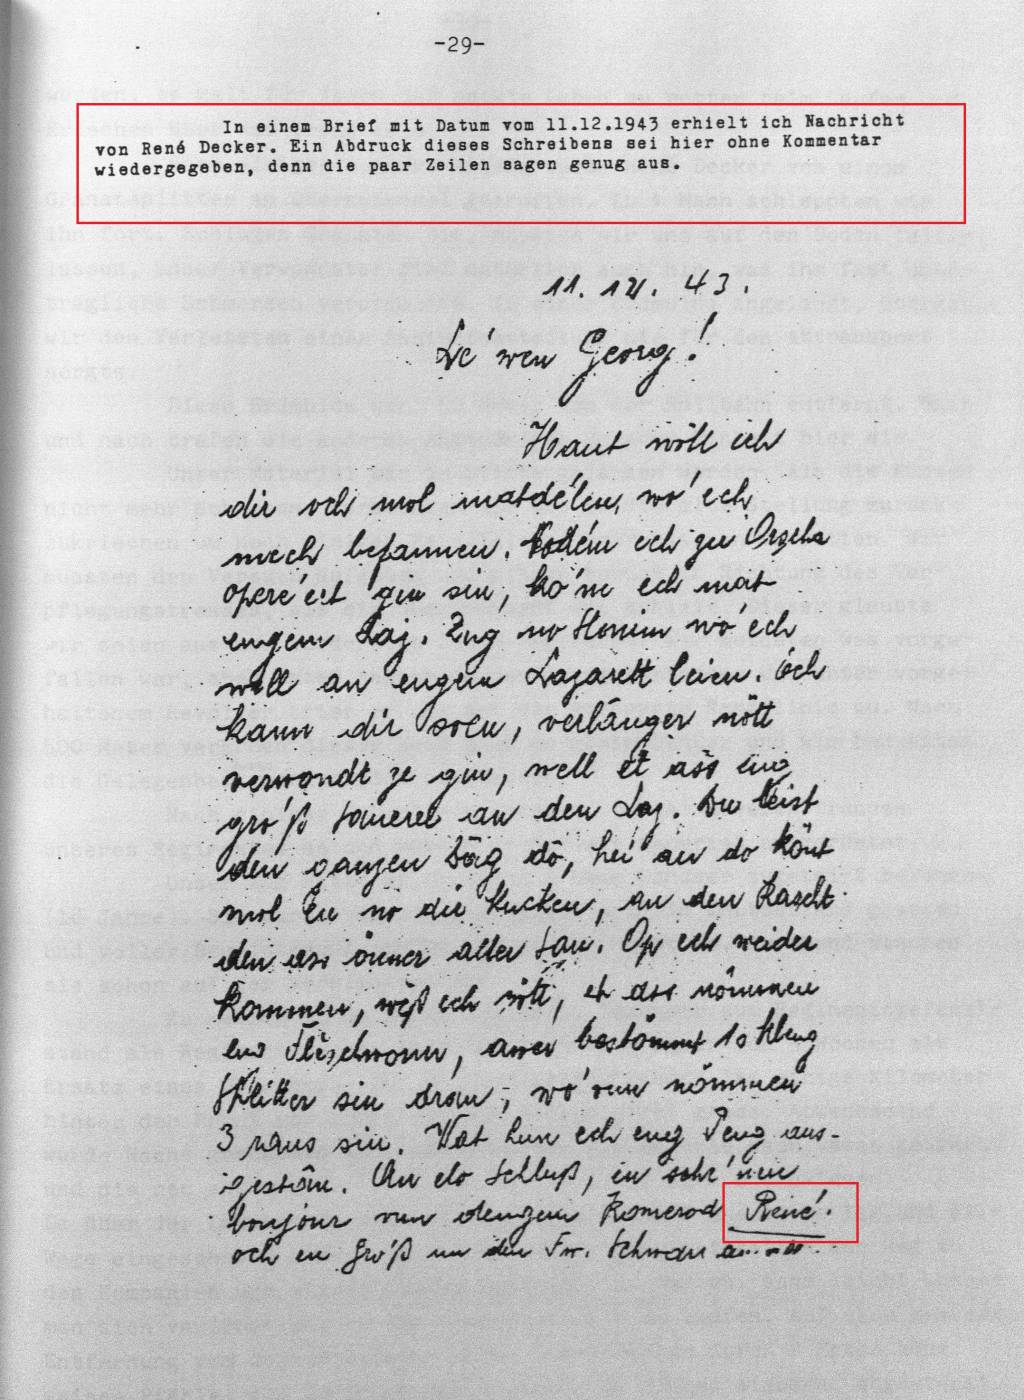 -29-
In einem Brief mit Datum vom 11.12.1943 erhielt ich Nachricht
von René Decker. Ein Abdruck dieses Schreibens sei hier ohne Kommentar
wiedergegeben, denn die paar Zeilen sagen genug aus.
11. 12. 43.
Le'wen Georg!
Haut wöll ech
dir och mol matdélen, wo' ech
mech befannen. ech zu
operé'ert gin sin, ko'm ech mat
engem Laz. Zug no wo' ech
well an engem Lazarett leien. Ech
kann dir soen, verlänger nött
verwondt ze gin, well et ass eng
gro'ß Sauerei an den Laz. Du leist
den ganzen Dāg dō, hei an do könt
mol en no dir kucken, an den Rascht
den ass ömmer aller Sau. Op ech weider
kommen, wēß ech nött, et ass nömmen
eng Flēschwonn, awer bestömmt 10 kleng
Splitter sin dran, wo'vun nömmen
3 raus sin. Wat hun ech eng Peng aus-
gestān. An elo Schluß, en sché'nen
bonjour vun dengem Komerod René!
och en Gró'ß un den Fw. Schwan